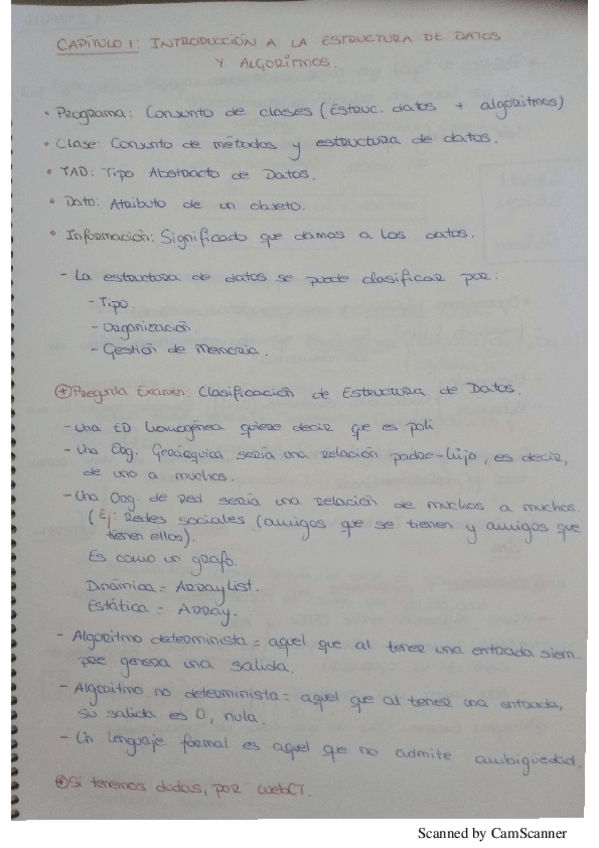 CAPÍTULO 1: INTRODUCCIÓN A LA ESTRUCTURA DE DATOS
Y ALGORITMOS.
• Programa: Conjunto de clases (Estruc. datos + algoritmos)
• Clase: Conjunto de métodos y estructura de datos.
• TAD: Tipo Abstracto de Datos.
• Dato: Atributo de un objeto.
• Información: Significado que damos a los datos.
- La estructura de datos se puede clasificar por:
- Tipo
- Organización.
- Gestión de Memoria.
Pregunta Examen: Clasificación de Estructura de Datos.
- Una ED homogénea quiere decir que es poli
- Una Org. Jerárquica sería una relación padre-hijo, es decir,
de uno a muchos.
- Una Org. de Red sería una relación de muchos a muchos
(Ej: Redes sociales (amigos que se tienen y amigos que
tienen ellos).
Es como un grafo.
Dinámica = ArrayList.
Estática = Array.
- Algoritmo determinista = aquel que al tener una entrada siem
pre genera una salida.
- Algoritmo no determinista = aquel que al tener una entrada,
su salida es 0, nula.
- Un lenguaje formal es aquel que no admite ambigüedad.
Si tenemos dudas, por WebCT.
Scanned by CamScanner